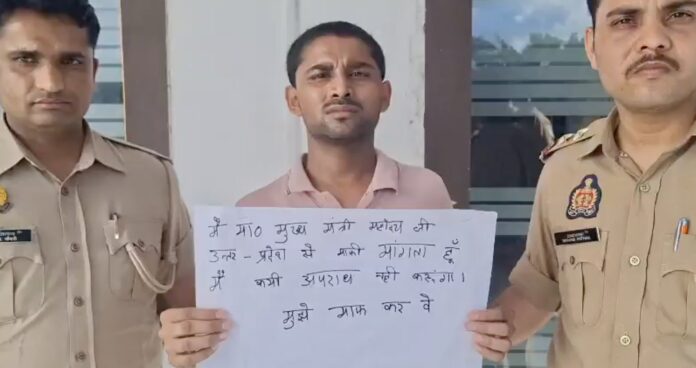 मैं मा० मुख्य मंत्री महोदय जी
उत्तर-प्रदेश से माफी मांगता हूँ
मैं कभी अपराध नही करूंगा।
मुझे माफ कर दे